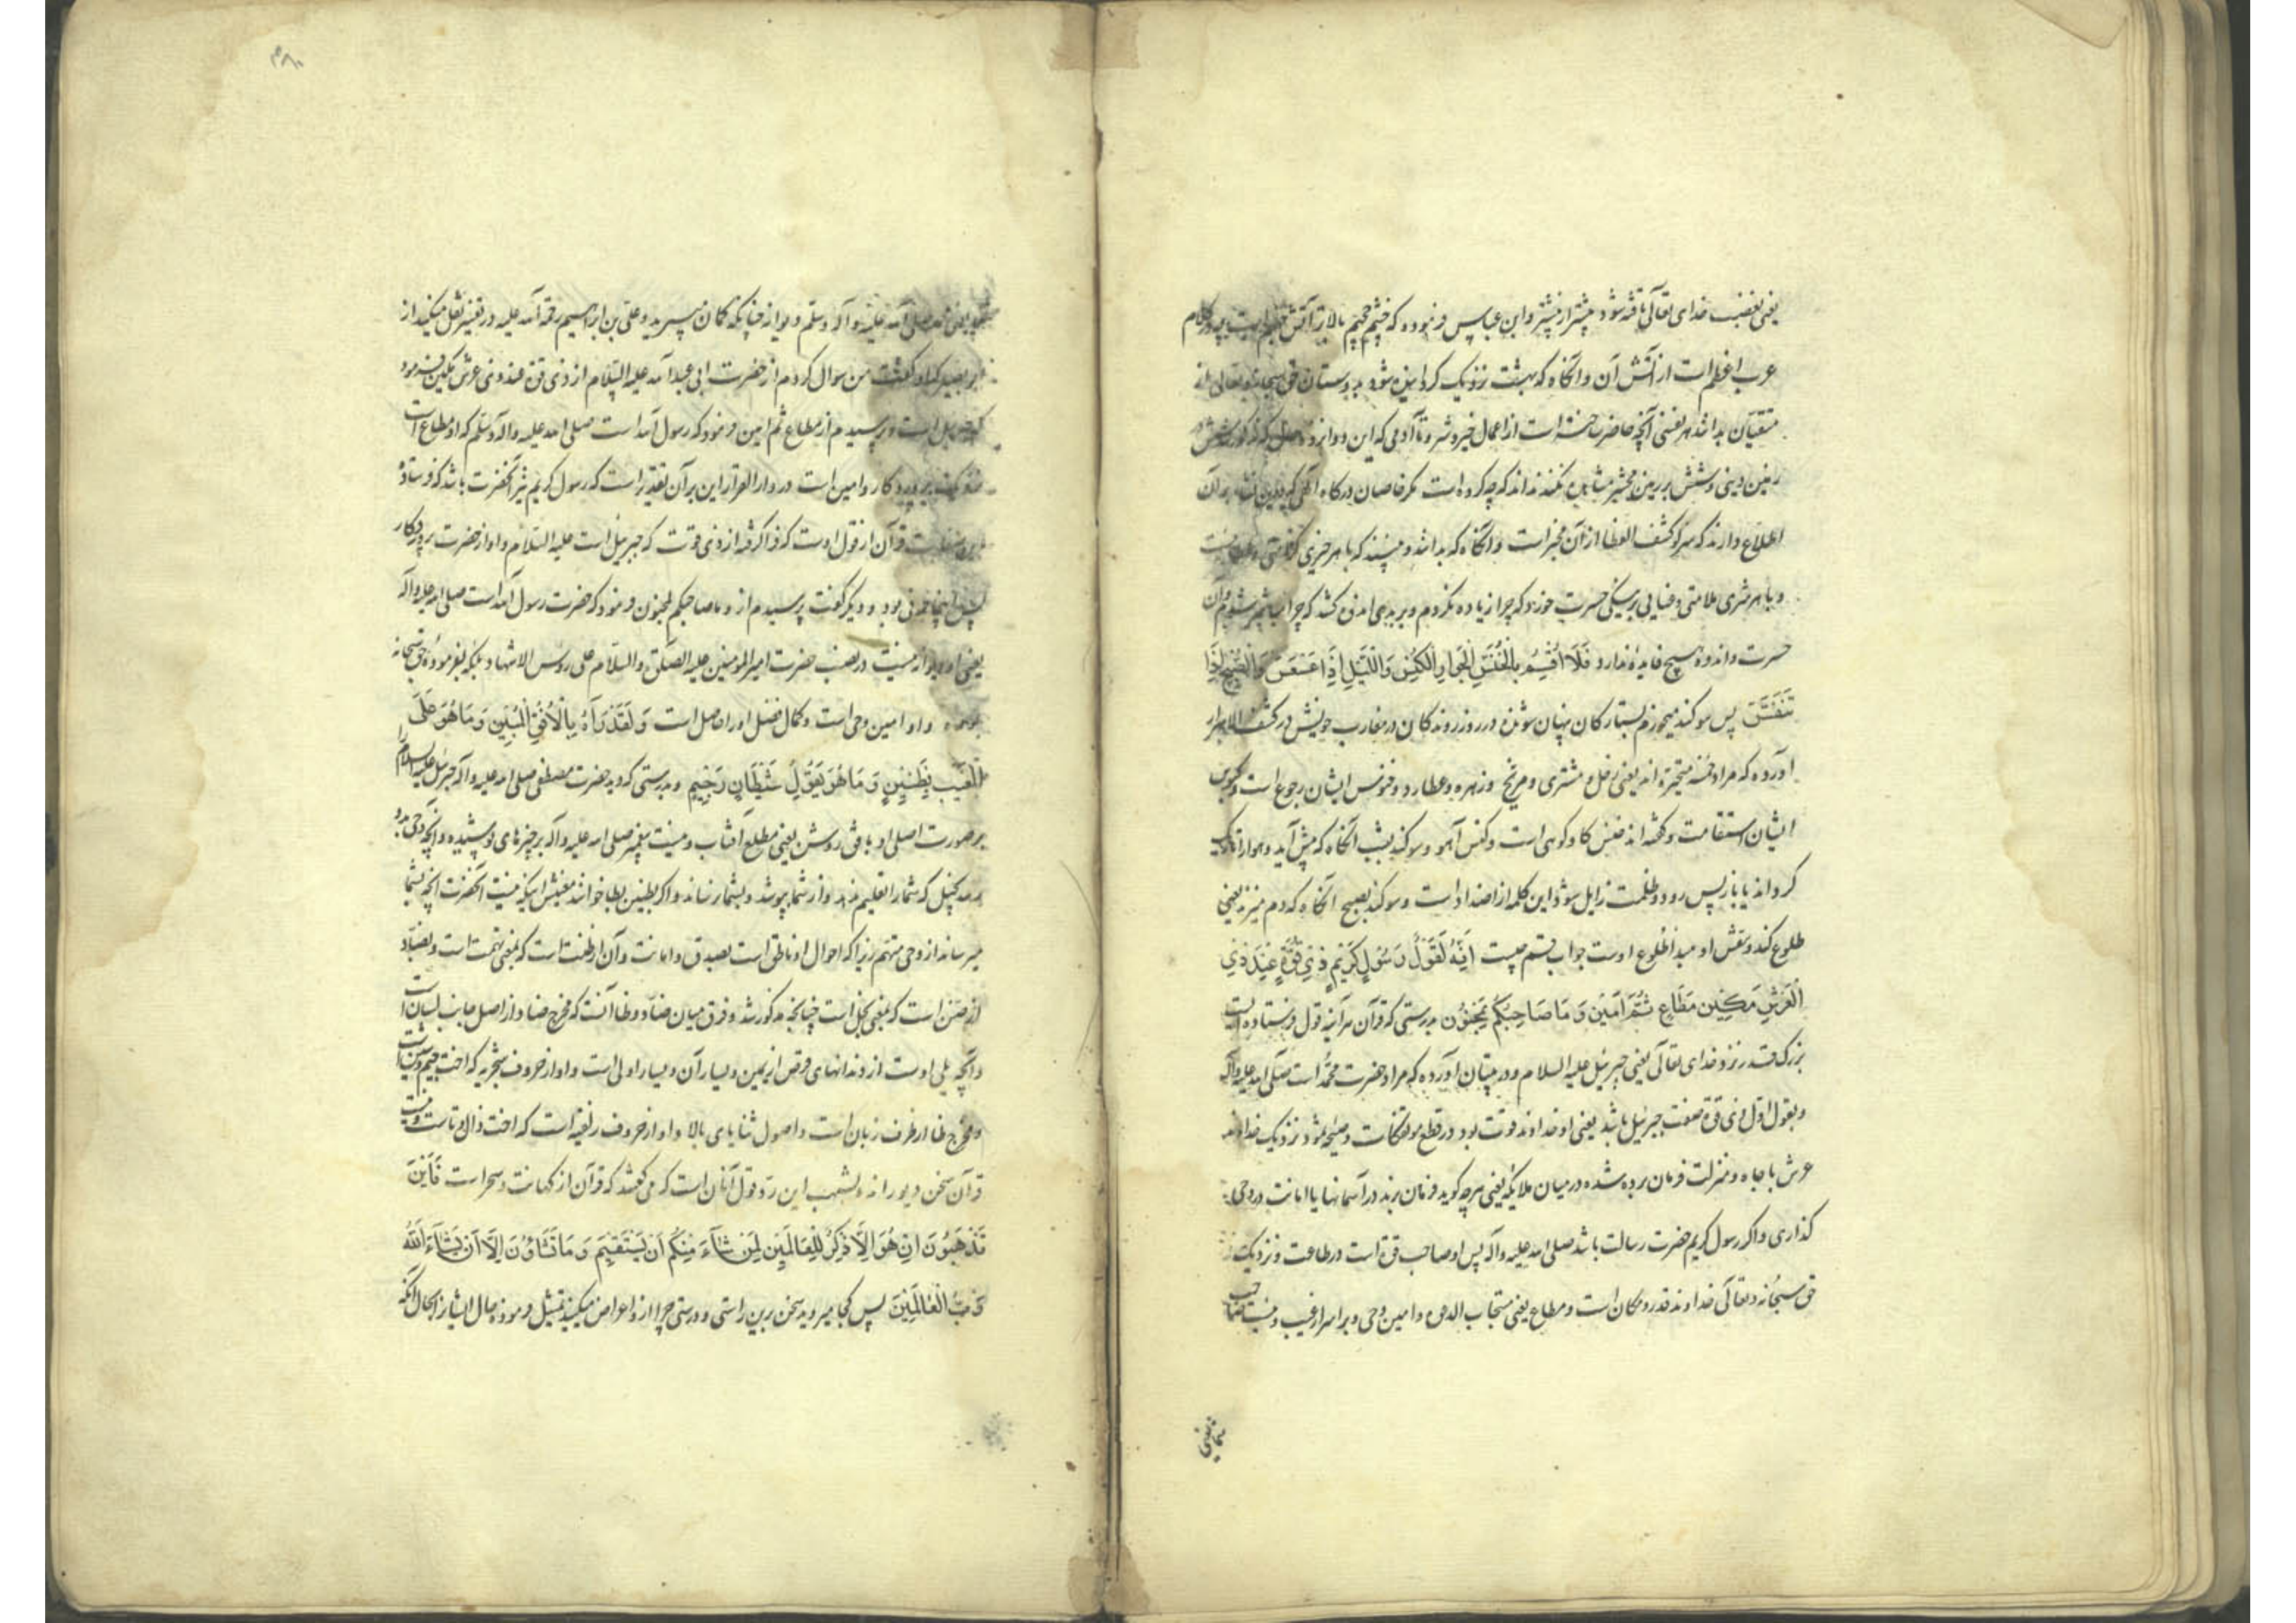 یعنی بغضب خدای تعالی تافته شود بیشتر از پیشتر و ابن عباس فرموده که خشم جحیم بالاتر آتش کلام
عرب اعظم است از آتش آن و آنگاه که بهشت نزدیک گردانیده شود بدوستان حق سبحانه و تعالی
متقیان بداند هر نفسی آنچه حاضر ساخته است از اعمال خیر و شر و تا آدمی که این دوازده
زمین دینی و شش بر زمین محشر مشاهده نکنند نداند که چه کرده است مگر خاصان درگاه الهی که بر آن
اطلاع دارند که سر لو کشف الغطا از آن مخبر است و آنگاه که بدانند و ببینند که با هر خیری کرامتی
و با هر شری ملامتی و عنایی بر نیکی حسرت خورد که چرا زیاده نکردم و بر بدی اندوه کشد که چرا
حسرت و اندوه هیچ فایده ندارد فَلَا أُقْسِمُ بِالْخُنَّسِ الْجَوَارِ الْكُنَّسِ وَاللَّيْلِ إِذَا عَسْعَسَ وَالصُّبْحِ إِذَا
تَنَفَّسَ پس سوگند میخورم بستارگان پنهان شونده در روز روندگان در مغارب خویش در کشف الاسرار
آورده که مراد خمسه متحیره اند یعنی زحل و مشتری و مریخ و زهره و عطارد و خنوس ایشان رجوع است و کنوس
ایشان استقامت و گفته اند خنس گاو کوهی است و کنس آهو و سوگند بشب آنگاه که پیش آید و هوا را تاریک
گرداند یا باز پس رود و ظلمت زایل شود و این کلمه از اضداد است و سوگند بصبح آنگاه که دم میزند یعنی
طلوع کند و نفس او مبدأ طلوع اوست جواب قسم چیست إِنَّهُ لَقَوْلُ رَسُولٍ كَرِيمٍ ذِي قُوَّةٍ عِنْدَ ذِي
الْعَرْشِ مَكِينٍ مُطَاعٍ ثَمَّ أَمِينٍ وَمَا صَاحِبُكُمْ بِمَجْنُونٍ بدرستی که قرآن هر آینه قول فرستاده ایست
بزرک قدر نزد خدای تعالی یعنی جبرئیل علیه السلام و در تبیان آورده که مراد حضرت محمد است صلی الله علیه وآله
و بقول اول ذی قوة صفت جبرئیل باشد یعنی او خداوند قوت بود در قطع مؤتفکات و صیحه ثمود نزدیک خداوند
عرش با جاه و منزلت فرمان برده شده در میان ملایکه یعنی هرچه گوید فرمان برند در آسمانها با امانت در وحی
گذاری و اگر رسول کریم حضرت رسالت باشد صلی الله علیه وآله پس او صاحب قوة است در طاعت و نزدیک
حق سبحانه و تعالی خداوند قدر و مکان است و مطاع یعنی مستجاب الدعوه و امین وحی و بر اسرار غیب و نیست صاحب شما
شما یعنی
صلی الله علیه و آله وسلم دیوانه چنانکه گمان میبرید و علی بن ابراهیم رحمة الله علیه در تفسیر نقل میکند از
ابو بصیر که او گفت من سوال کردم از حضرت ابی عبد الله علیه السلام از ذی قوة عند ذی عرش مکین فرمود
که جبرئیل است و پرسیدم از مطاع ثم امین فرمود که رسول الله است صلی الله علیه وآله وسلم که او مطاع است
نزدیک پروردگار و امین است در دار القرار این بر آن تقدیر است که رسول کریم نیز آنحضرت باشد که فرستاده
قرآن از قول اوست که فرا گرفته از ذی قوت که جبرئیل است علیه السلام و او از حضرت پروردگار
بود و دیگر گفت پرسیدم از و ما صاحبکم بمجنون فرمود که حضرت رسول الله است صلی الله علیه وآله
یعنی او دیوانه نیست در نصب حضرت امیر المومنین علیه الصلوة والسلام علی رؤس الاشهاد بلکه بفرموده حق سبحانه
بوده و او امین وحی است و کمال فضل او را حاصل است وَلَقَدْ رَآهُ بِالْأُفُقِ الْمُبِينِ وَمَا هُوَ عَلَى
الْغَيْبِ بِظَنِينٍ وَمَا هُوَ بِقَوْلِ شَيْطَانٍ رَجِيمٍ و بدرستی که دید حضرت مصطفی صلی الله علیه وآله جبرئیل علیه السلام را
بر صورت اصلی او بافق روشن یعنی مطلع آفتاب و نیست پیغمبر صلی الله علیه وآله بر چیزهای پوشیده و آنچه وحی بدو
رسد بخیل که شما را تعلیم ندهد و از شما بپوشد و بشما نرساند و اگر بظنین بظا خوانند معنیش اینکه نیست آنحضرت آنچه بشما
میرساند از وحی متهم زیرا که احوال او ناطق است بصدق و امانت و آن از ظنت است که بمعنی تهمت است و بضاد
از ضن است که بمعنی بخل است چنانچه مذکور شد و فرق میان ضاد و ظا آنست که مخرج ضاد از اصل جانب لسان است
و آنچه یلی اوست از دندانهای فرض از یمین و یسار آن و یسار اولی است و او از حروف شجریه که اخت جیم و شین است
و مخرج ظا از طرف زبان است و اصول ثنایای بالا و او از حروف ذلقیه است که اخت ذال و ثاست و نیست
قرآن سخن دیو رانده بشهب این رد قول آنان است که می گفتند که قرآن از کهانت و سحر است فَأَيْنَ
تَذْهَبُونَ إِنْ هُوَ إِلَّا ذِكْرٌ لِلْعَالَمِينَ لِمَنْ شَاءَ مِنْكُمْ أَنْ يَسْتَقِيمَ وَمَا تَشَاؤُنَ إِلَّا أَنْ يَشَاءَ اللَّهُ
رَبُّ الْعَالَمِينَ پس کجا میروید سخن بدین راستی و درستی چرا ازو اعراض میکنید تمثیل فرموده حال ایشان را بحال آنکه